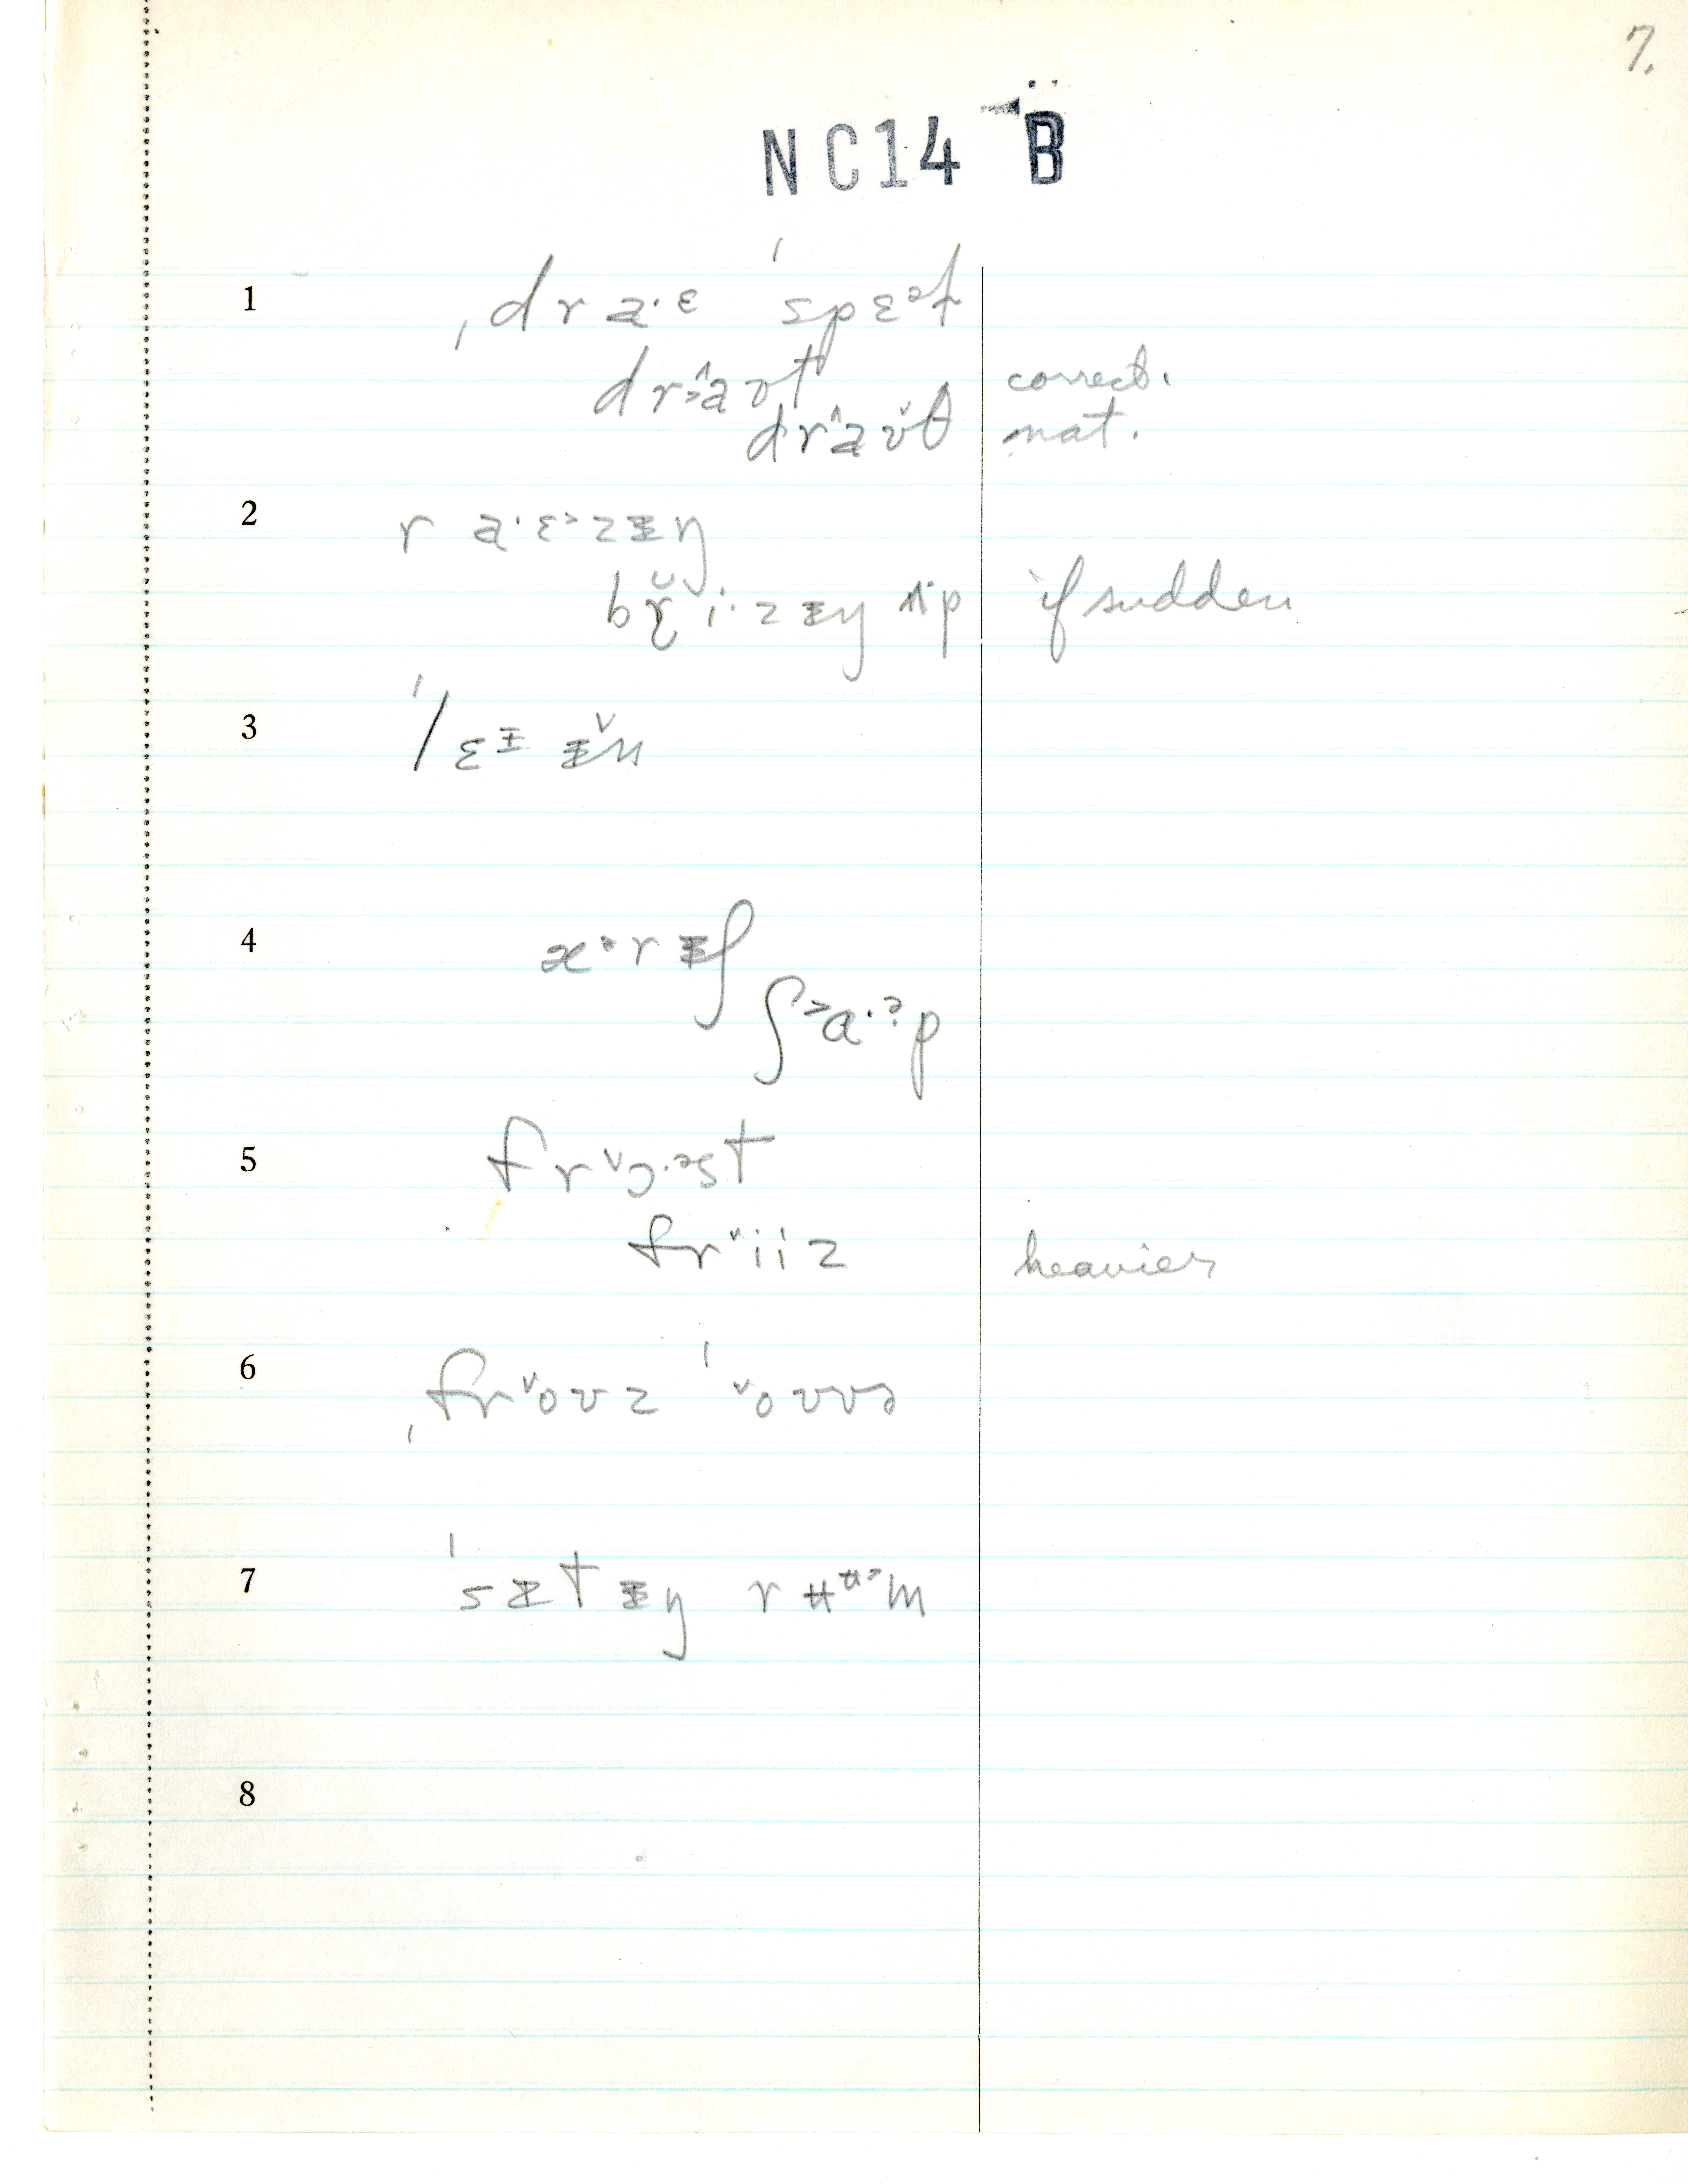 7.
NC14 B
1 ˌdra·ɛ ˈspɛᵊɫ
dr˃a^ʊt correct.
dr^aʊ̌θ nat.
2 ra·ɛ˃zᵻŋ
br̯̆i·zᵻŋ ʌp if sudden
3
4 æ·ᵊrᵻʃ
ʃ˃ɑ·ᵊp
5 frˇɔ·ᵊst
frˇiiz heavier
6 ˌfrˇoʊz ˈˇoʊvə
7 ˈsᵻtᵻŋ rʉᵿ˃m
8